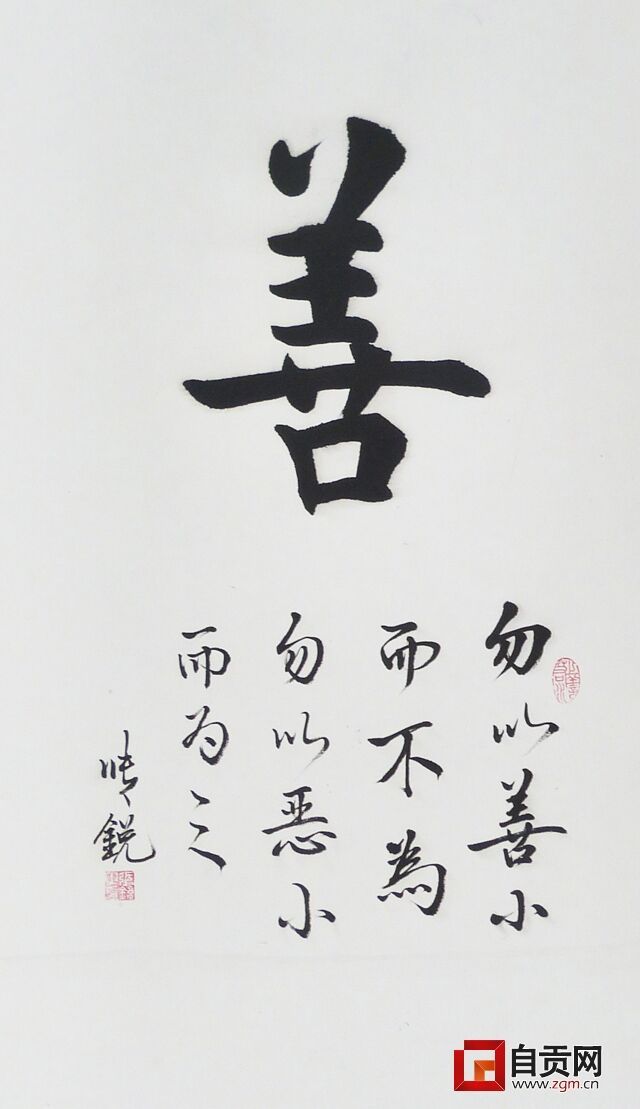 善
勿以善小
而不為
勿以恶小
而为之
自贡网
www.zgm.cn